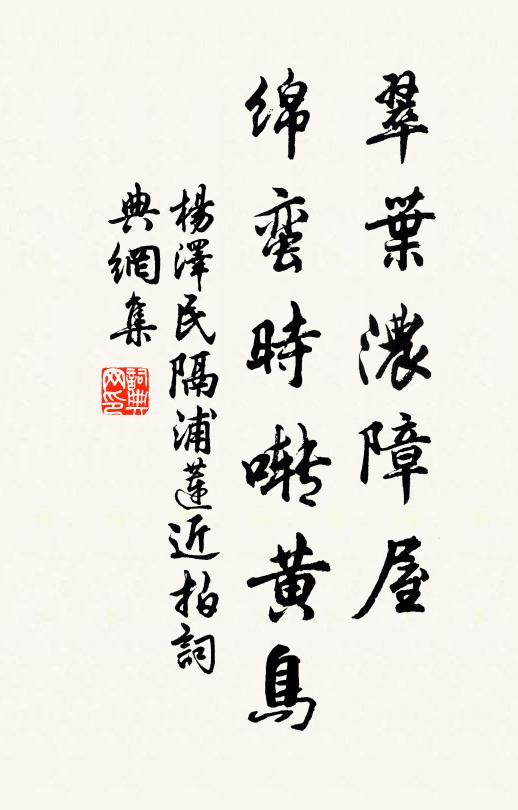 翠葉濃障屋
綿蛮時啭黄鳥
楊澤民隔浦蓮近拍詞
典網集
詞典网印